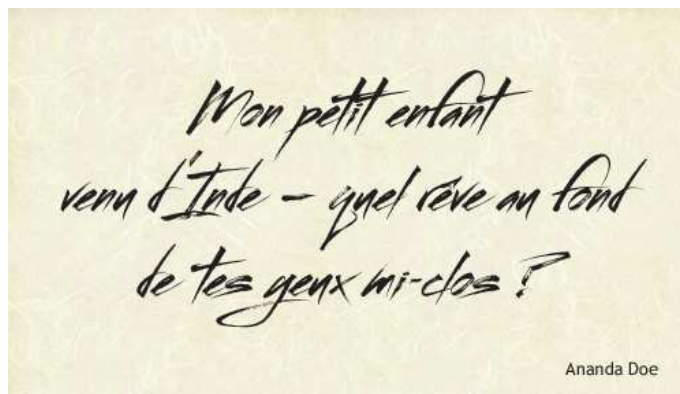 Mon petit enfant
venu d'Inde – quel rêve au fond
de tes yeux mi-clos ?
Ananda Doe